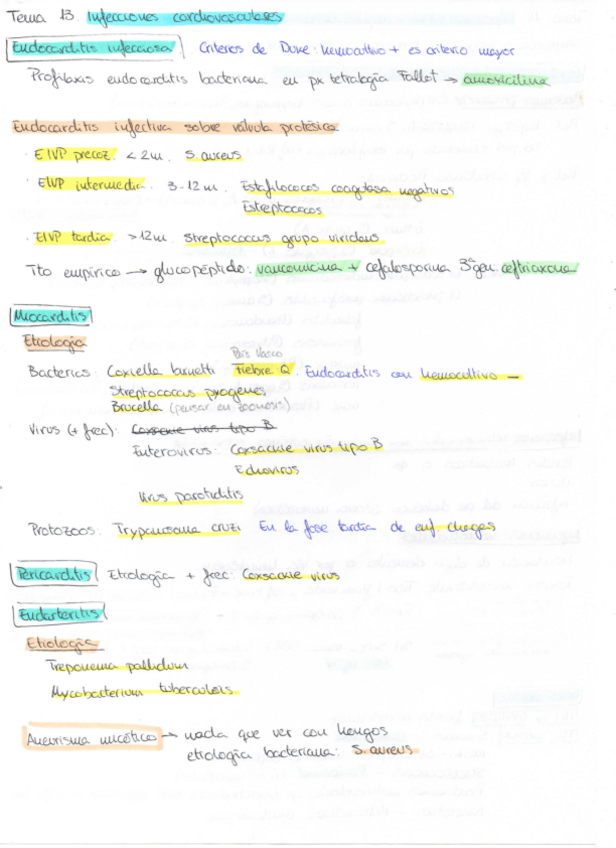 Tema 13. Infecciones cardiovasculares
Endocarditis infecciosa Criterios de Duke: hemocultivo + es criterio mayor
Profilaxis endocarditis bacteriana en px tetralogía Fallot → amoxicilina
Endocarditis infectiva sobre válvula protésica
· EIVP precoz. < 2m. S. aureus
· EIVP intermedia. 3-12m. Estafilococos coagulasa negativos
Estreptococos
· EIVP tardía >12m. Streptococcus grupo viridans
Tto empírico → glucopéptido: vancomicina + cefalosporina 3ªgen: ceftriaxona
Miocarditis
Etiología
País Vasco
Bacterias: Coxiella burnetti - Fiebre Q. Endocarditis con hemocultivo -
Streptococcus pyogenes
Brucella (pensar en zoonosis)
Virus (+ frec): Coxsackie virus tipo B
Enterovirus: Coxsackie virus tipo B
Echovirus
Virus parotiditis
Protozoos: Trypanosoma cruzi En la fase tardía de enf chagas
Pericarditis Etiología + frec: Coxsackie virus
Endarteritis
Etiología
Treponema pallidum
Mycobacterium tuberculosis
Aneurisma micótico → nada que ver con hongos
etiología bacteriana: S. aureus